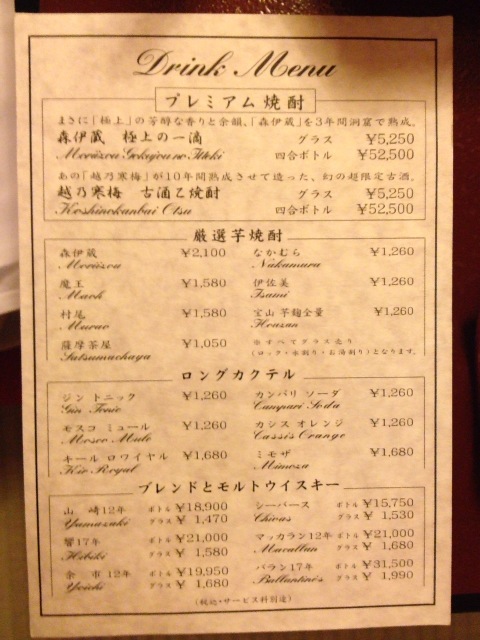 Drink Menu
プレミアム焼酎
まさに「極上」の芳醇な香りと余韻、「森伊蔵」を3年間洞窟で熟成。
森伊蔵 極上の一滴 グラス ¥5,250
Moriizou Gokujou no Itteki 四合ボトル ¥52,500
あの「越乃寒梅」が10年間熟成させて造った、幻の超限定古酒。
越乃寒梅 古酒乙焼酎 グラス ¥5,250
Koshinokanbai Otsu 四合ボトル ¥52,500
厳選芋焼酎
森伊蔵 ¥2,100 なかむら ¥1,260
Moriizou Nakamura
魔王 ¥1,580 伊佐美 ¥1,260
Maoh Isami
村尾 ¥1,580 宝山 芋麹全量 ¥1,260
Murao Houzan
薩摩茶屋 ¥1,050 ※すべてグラス売り
Satsumachaya (ロック・水割り・お湯割り)となります。
ロングカクテル
ジン トニック ¥1,260 カンパリ ソーダ ¥1,260
Gin Tonic Campari Soda
モスコ ミュール ¥1,260 カシス オレンジ ¥1,260
Mosco Mule Cassis Orange
キール ロワイヤル ¥1,680 ミモザ ¥1,680
Kir Royal Mimoza
ブレンドとモルトウイスキー
山 崎12年 ボトル ¥18,900 シーバース ボトル ¥15,750
Yamazaki グラス ¥ 1,470 Chivas グラス ¥ 1,530
響17年 ボトル ¥21,000 マッカラン12年 ボトル ¥21,000
Hibiki グラス ¥ 1,580 Macallan グラス ¥ 1,680
余 市 12年 ボトル ¥19,950 バラン17年 ボトル ¥31,500
Yoichi グラス ¥ 1,680 Ballantine's グラス ¥ 1,990
(税込・サービス料別途)